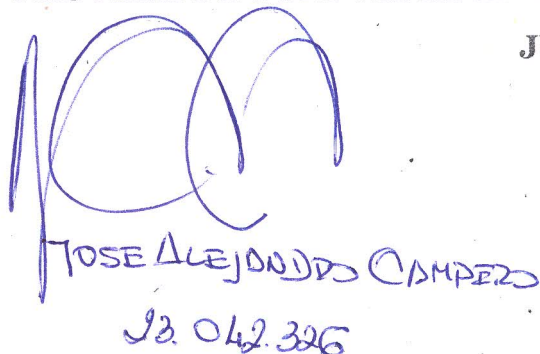 J
JOSE ALEJANDRO CAMPERO
23.042.326